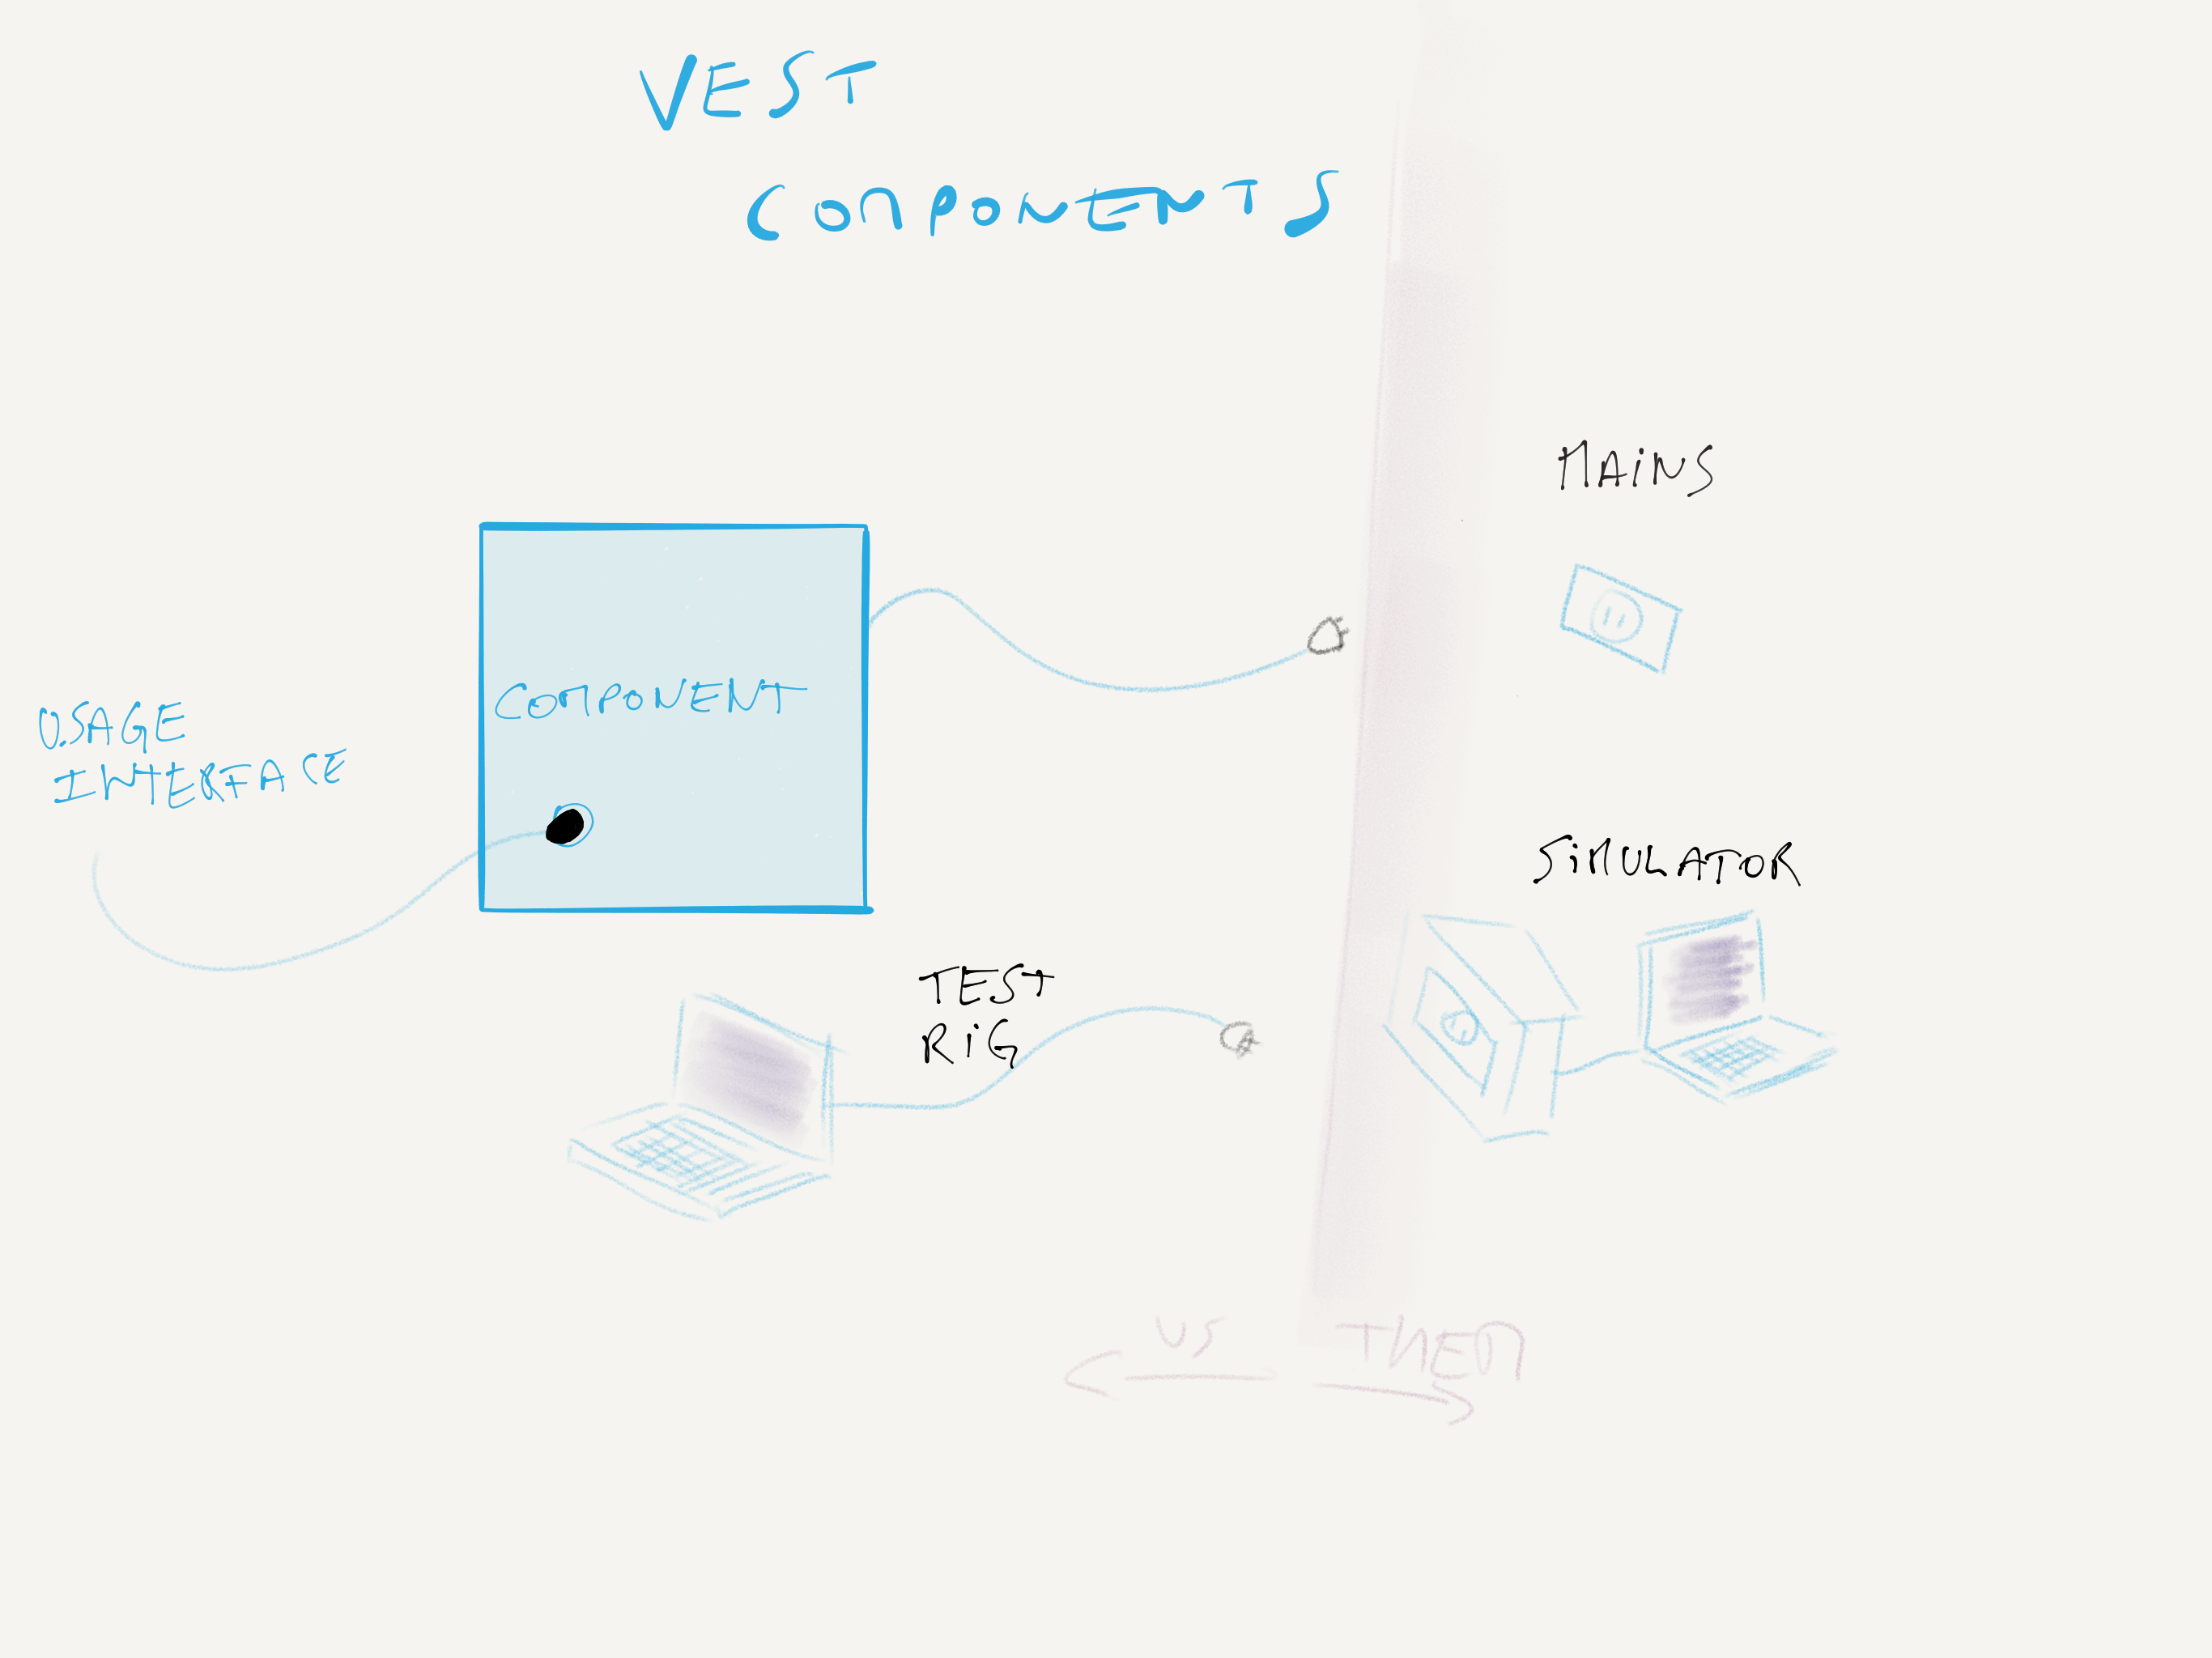 VEST
COMPONENTS
MAINS
COMPONENT
USAGE
INTERFACE
SIMULATOR
TEST
RIG
US THEM